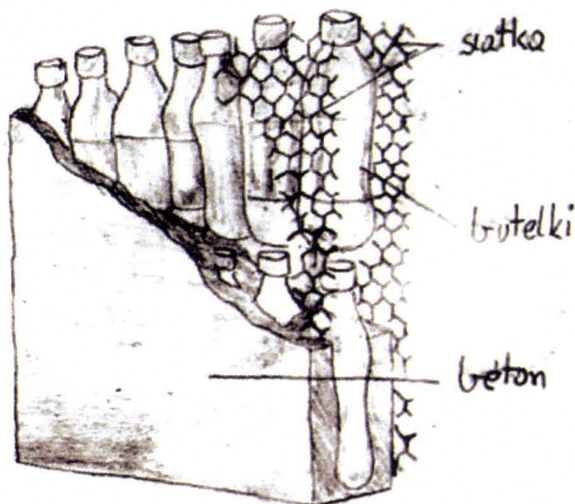 siatka
butelki
béton